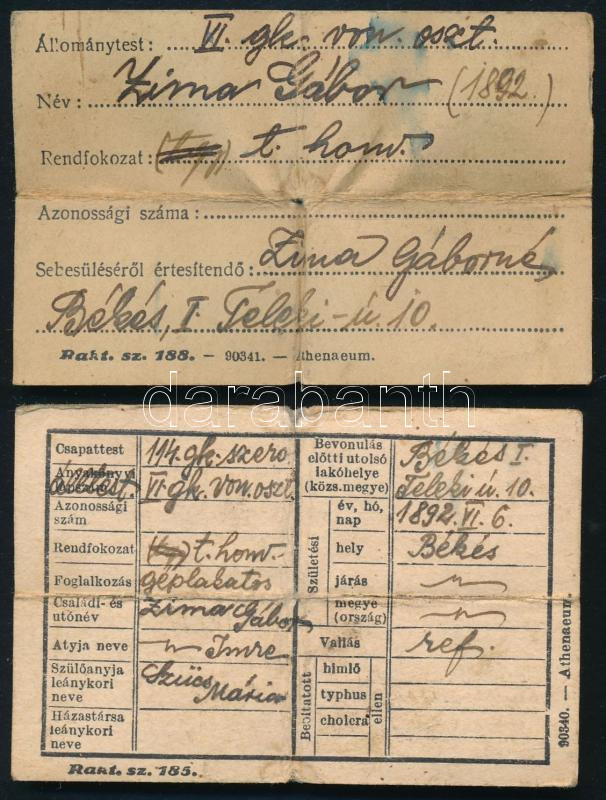 Állománytest: VI. gk. von. oszt.
Név: Zima Gábor (1892.)
Rendfokozat: t. honv.
Azonossági száma:
Sebesüléséről értesítendő: Zima Gáborné,
Békés, I. Teleki-ú. 10.
Rakt. sz. 188. – 90341. – Athenaeum.
darabanth
Csapattest 114. gk. szero.
Anyakönyvi
VI. gk. von. oszt.
Azonossági
szám
Rendfokozat t. honv.
Foglalkozás géplakatos
Családi- és
utónév Zima Gábor
Atyja neve Imre
Szülőanyja
leánykori
neve Szűcs
Mária
Házastársa
leánykori
neve
Bevonulás
előtti utolsó
lakóhelye
(közs.megye) Békés I.
Teleki ú. 10.
Születési
év, hó,
nap 1892. VI. 6.
hely Békés
járás
megye
(ország)
Vallás ref.
Beoltatott
himlő
typhus
cholera
ellen
Rakt. sz. 185.
90340. — Athenaeum.